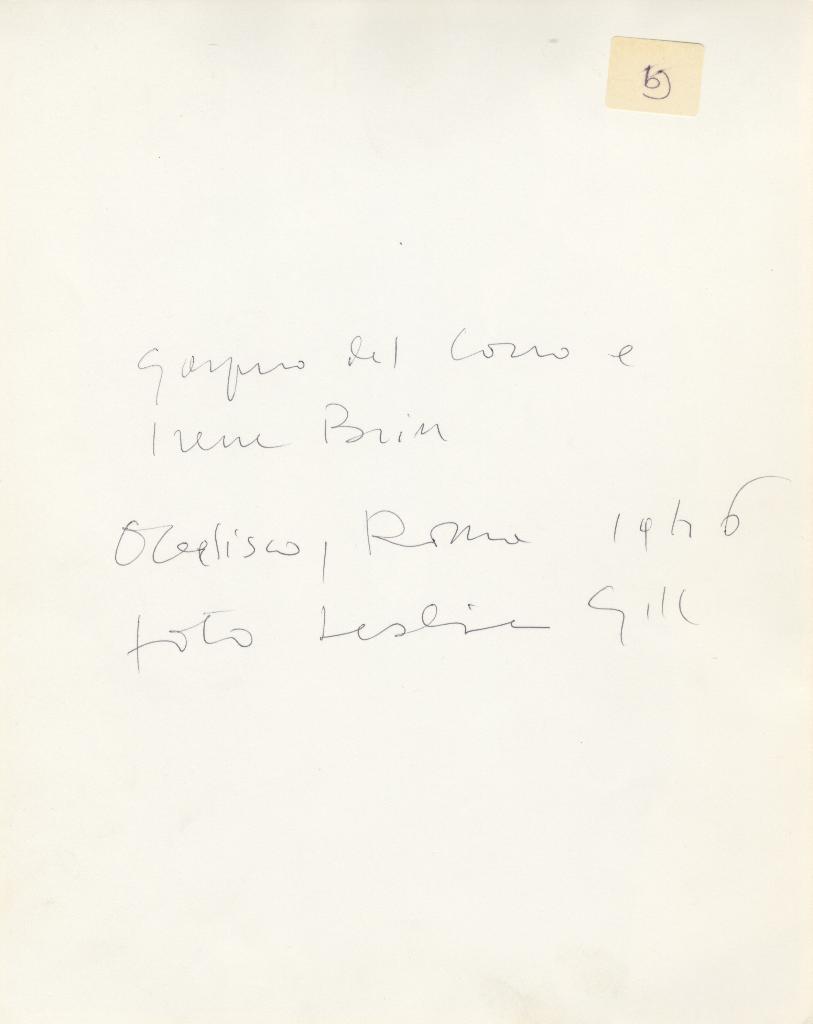 15
Gasparo del Corso e
Irene Brin
Obelisco, Roma 1946
foto Leslie Gill